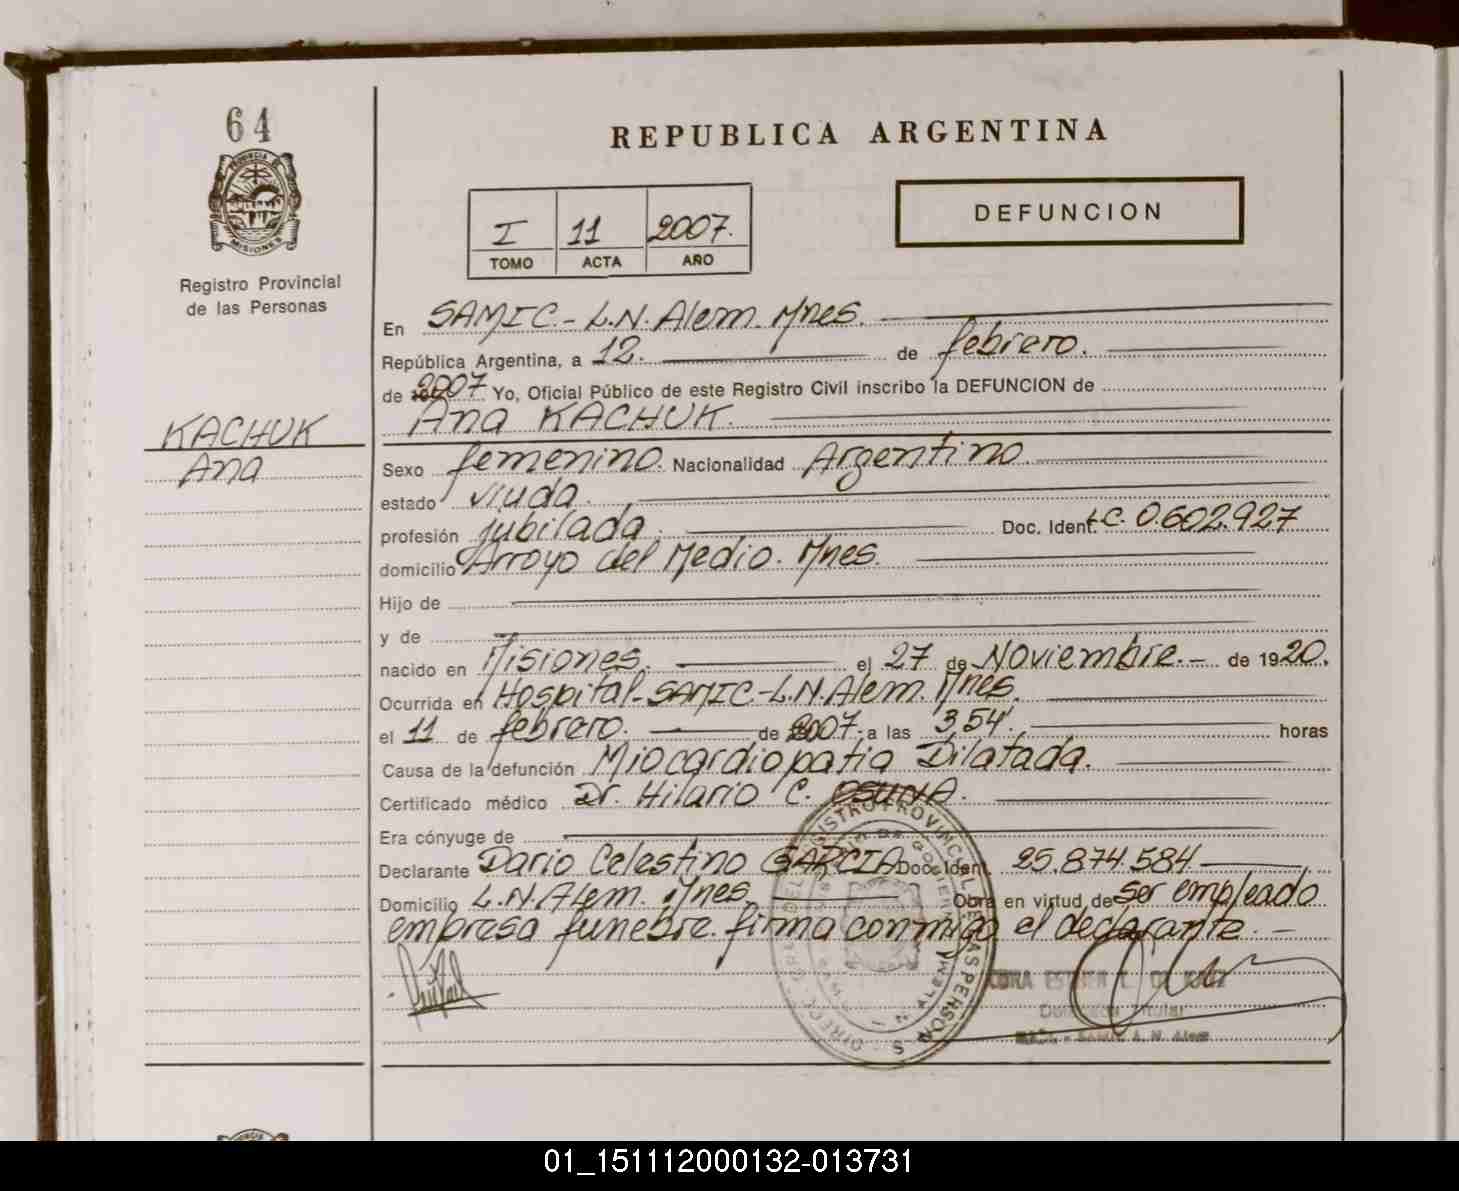 64
PROVINCIA DE
MISIONES
Registro Provincial
de las Personas
KACHUK
Ana
REPUBLICA ARGENTINA
I 11 2007.
TOMO ACTA AÑO
DEFUNCION
En SAMIC.- L.N. Alem. Mnes.
República Argentina, a 12. de febrero.
de 2007 Yo, Oficial Público de este Registro Civil inscribo la DEFUNCION de
Ana KACHUK.
Sexo femenino. Nacionalidad Argentino.
estado viuda.
profesión jubilada. Doc. Ident. L.C. 0.602.927
domicilio Arroyo del Medio. Mnes.
Hijo de
y de
nacido en Misiones. el 27 de Noviembre.- de 1920.
Ocurrida en Hospital-SAMIC.-L.N.Alem. Mnes.
el 11 de febrero. de 2007. a las 3 54'. horas
Causa de la defunción Miocardiopatia Dilatada.
Certificado médico Dr. Hilario C. OSUNA.
Era cónyuge de
Declarante Dario Celestino GARCIA Doc. Ident. 25.874.584
Domicilio L.N.Alem. Mnes. Obra en virtud de ser empleado
empresa funebre. firma conmigo el declarante.-
REGISTRO PROVINCIAL DE LAS PERSONAS
L. N. ALEM
Titular
01_151112000132-013731